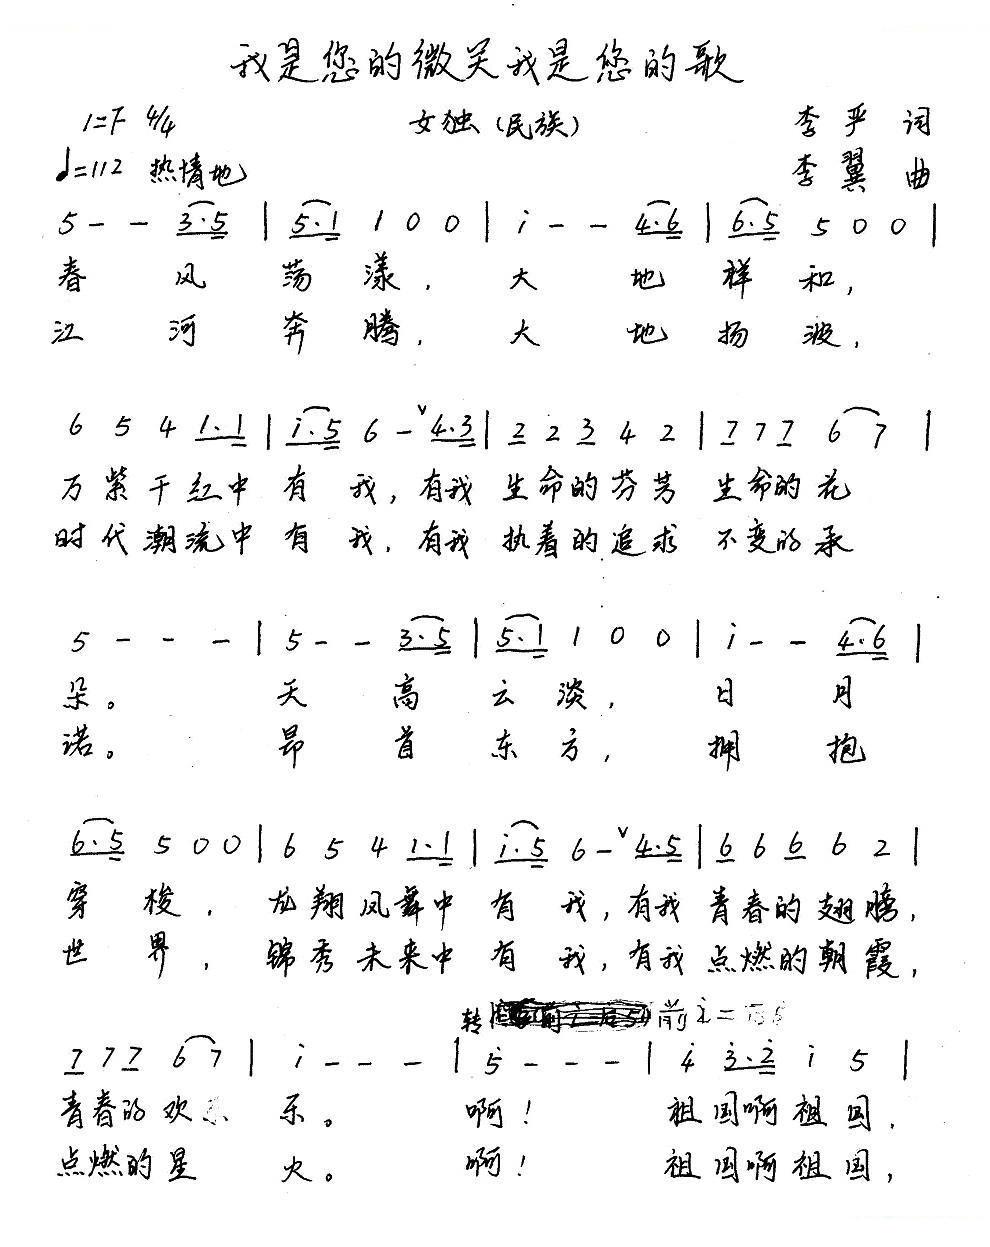 我是您的微笑我是您的歌
1=F 4/4 女独(民族) 李严 词
♩=112 热情地 李翼 曲
5 - - 3·5 | 5·1 1 0 0 | i - - 4·6 | 6·5 5 0 0 |
春 风 荡 漾, 大 地 祥 和,
江 河 奔 腾, 大 地 扬 波,
6 5 4 1·1 | i·5 6 - ᵛ4·3 | 2 2 3 4 2 | 7 7 7 6 7 |
万紫千红中有我,有我生命的芬芳 生命的花
时代潮流中有我,有我执着的追求 不变的承
5 - - - | 5 - - 3·5 | 5·1 1 0 0 | i - - 4·6 |
朵。 天 高 云 淡, 日 月
诺。 昂 首 东 方, 拥 抱
6·5 5 0 0 | 6 5 4 1·1 | i·5 6 - ᵛ4·5 | 6 6 6 6 2 |
穿 梭, 龙翔凤舞中有我,有我青春的翅膀,
世 界, 锦秀未来中有我,有我点燃的朝霞,
转 前i=后5
7 7 7 6 7 | i - - - | 5 - - - | 4 3·2 i 5 |
青春的欢 乐。 啊! 祖国啊祖国,
点燃的星 火。 啊! 祖国啊祖国,